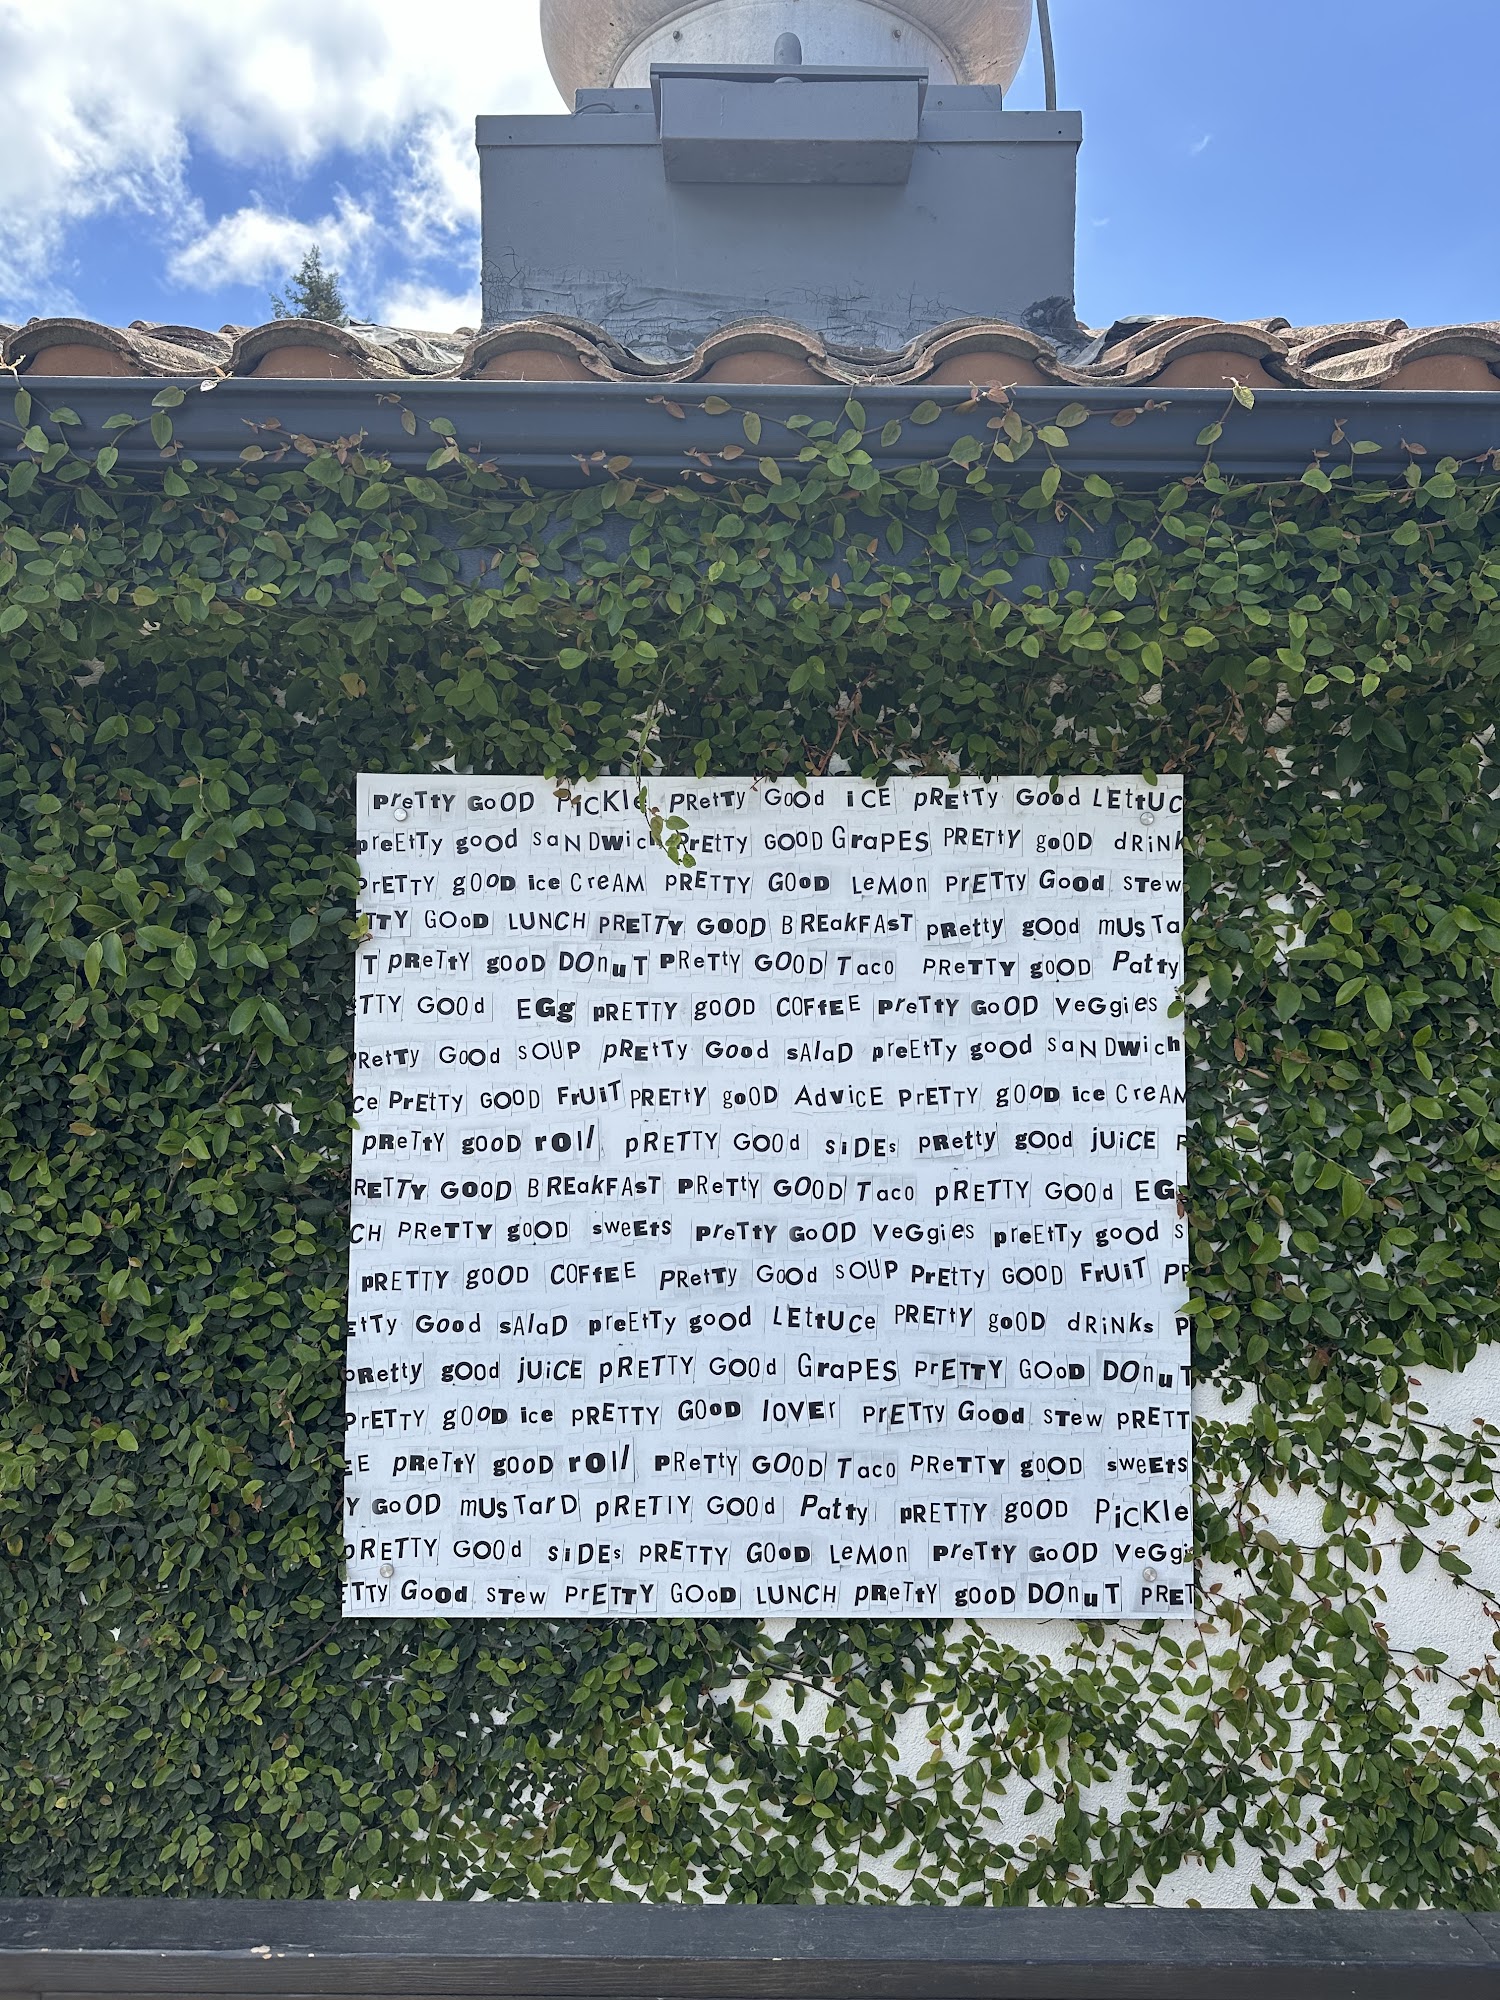 PreTTy GoOD PicKle PRetTy GOOd iCE pREtTy Good LEttUC
preEtTy good saNDwich PrEtTY GOOD GraPES PRETtY goOD dRiNk
PrETTY gOOD ice CreAM pRETTY GOoD LeMon PrETTy Good sTew
ETTY GOoD LUNCH PRETTY GOOD BREakFAsT pRetty gOod mUsTa
T pReTtY gooD DOnuT PReTtY GOOD Taco PReTTY gOOD Patty
ETTY GOOd EGg pRETTY gOOD COFfEE PreTtY GoOD VeGgies
PRetTy GoOd SOUP pREtTy Good sAlaD preEtTy good saNDwich
Ce PrEtTy GOOD FrUiT PRETtY goOD AdviCE PrETTY gOOD ice CreAM
pReTtY gooD roll pRETTY GOOd siDEs pRetty gOod jUiCE P
RETTY GOOD BREakFAsT PReTtY GOOD Taco pRETTY GOOd EG
CH PReTTY gOOD sweEts PreTtY GoOD VeGgies preEtTy good s
pRETTY gOOD COFfEE PRetTy GoOd SOUP PrEtTy GOOD FrUiT PR
EtTy Good sAlaD preEtTy good LEttUCe PRETtY goOD dRiNks P
pRetty gOod jUiCE pRETTY GOOd GraPES PrETTY GOoD DOnuT
PrETTY gOOD ice pRETTY GOoD lOVEr PrETTy Good sTew pRETT
EE pReTtY gooD roll PReTtY GOOD Taco PReTTY gOOD sweEts
Y GoOD mUsTarD pRETTY GOOd Patty pRETTY gOOD PicKle
pRETTY GOOd siDEs pRETTY GOoD LeMon PreTtY GoOD VeGgi
ETTy Good sTew PrETTY GOoD LUNCH pReTtY gooD DOnuT PRET